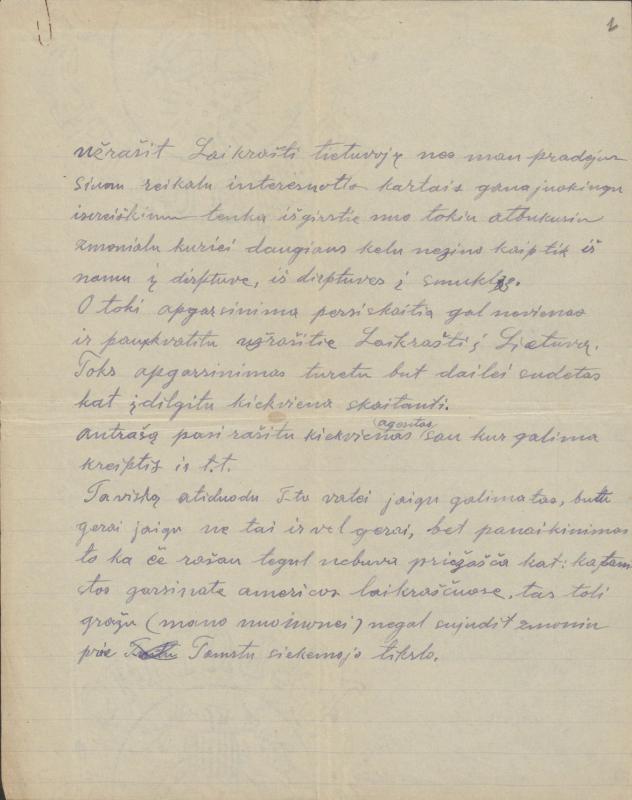 2
užrašit Laikrašti lietuvoję nes man pradėjus
šiuom reikalu interesuotis kartais gana juokingu
isireiškimu tenka išgirstie nuo tokiu atbukusiu
zmoniaLu kuriei daugiaus kelu nezino kaip tik iš
namu į dirptuvę, iš dirptuves į smuklę.
O toki apgarsinima perskaitia gal nevienas
ir pasikvatitu užrašitie Laikraštį į Lietuvą.
Toks apgarsinimas turetu but dailei sudetas
kat įdilgitu kiekviena skaitanti.
antrašą pasirašitu kiekvienas agentas sau kur galima
kreiptis ir t.t.
Taviską atiduodu T-to valei jaigu galima tas, butu
gerai jaigu ne tai ir vel gerai, bet panaikinimas
to ka če rašau tegul nebuva priežašča kat: kaptami
stos garsinate americos laikraščuose, tas toli
gražu (mano nuomonei) negal sujudit zmoniu
prie Tamstu siekemojo tikslo.